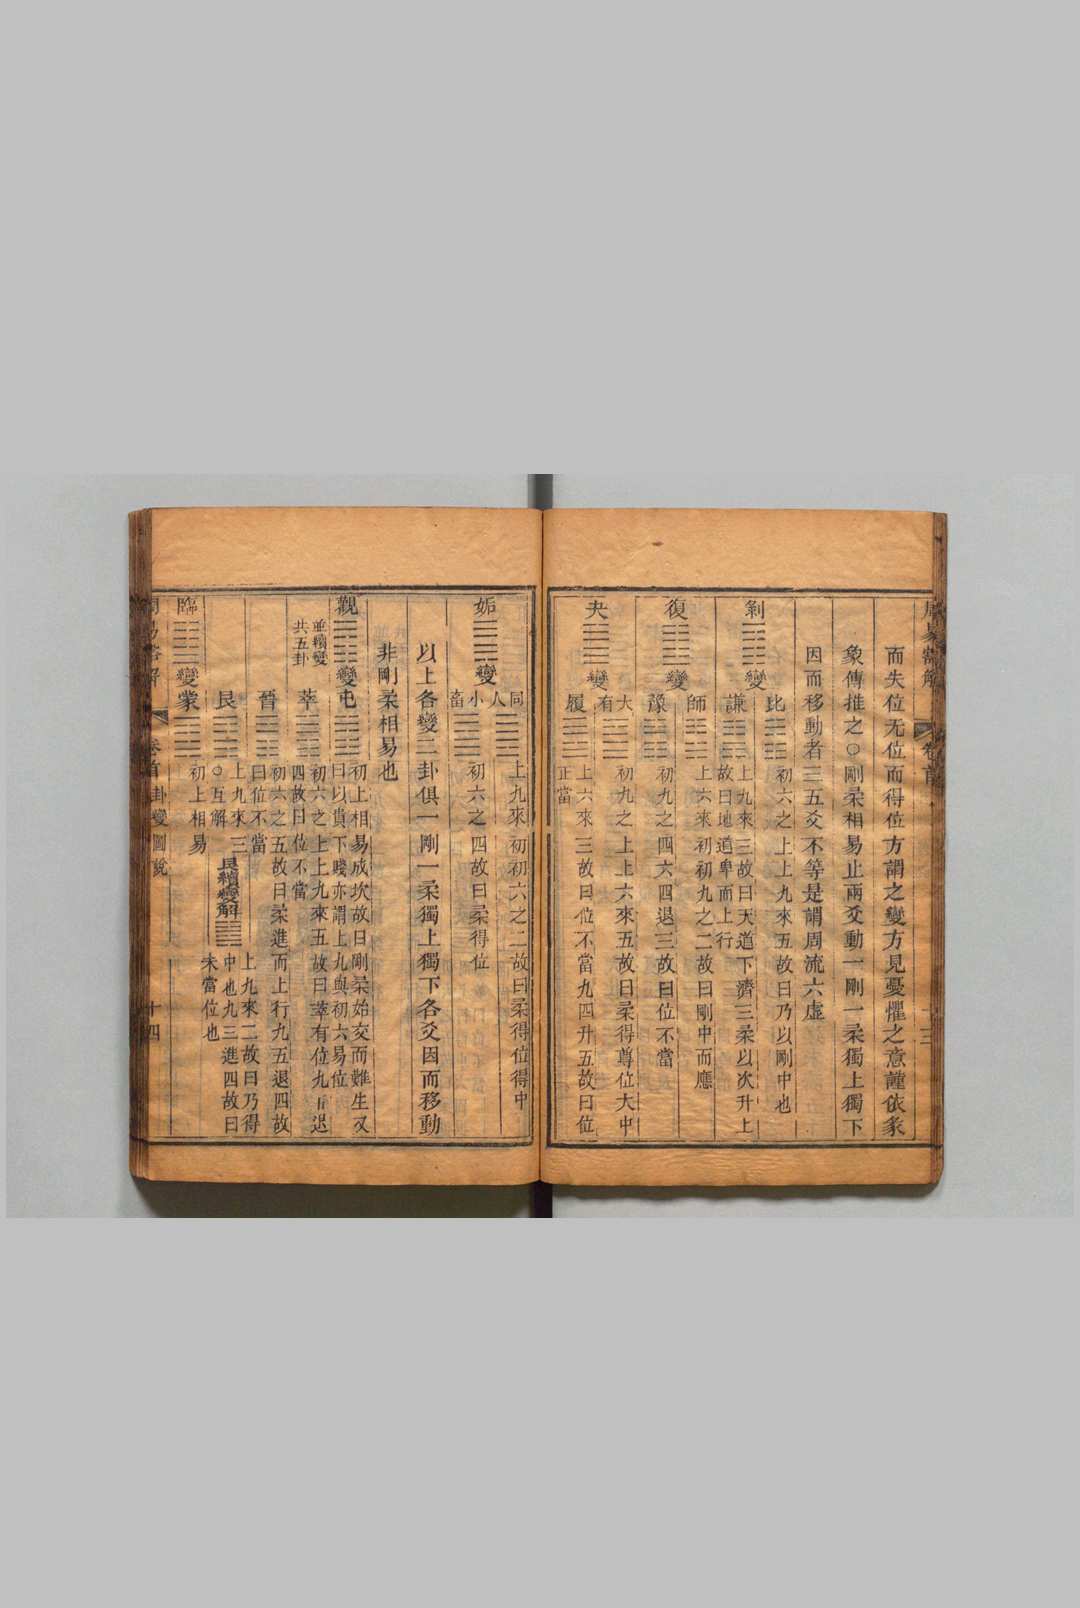 而失位无位而得位方謂之變方見憂懼之意謹依彖
象傳推之○剛柔相易止兩爻動一剛一柔獨上獨下
因而移動者三五爻不等是謂周流六虛
剝
變
比
初六之上上九來五故曰乃以剛中也
謙
上九來三故曰天道下濟三柔以次升上
故曰地道卑而上行
復
變
師
上六來初初九之二故曰剛中而應
豫
初九之四六四退三故曰位不當
夬
變
大有
初九之上上六來五故曰柔得尊位大中
履
上六來三故曰位不當九四升五故曰位
正當
姤
變
同人
上九來初初六之二故曰柔得位得中
小畜
初六之四故曰柔得位
以上各變二卦俱一剛一柔獨上獨下各爻因而移動
非剛柔相易也
觀
變
並續變
共五卦
屯
初上相易成坎故曰剛柔始交而難生又
曰以貴下賤亦謂上九與初六易位
萃
初六之上上九來五故曰萃有位九五退
四故曰位不當
晉
初六之五故曰柔進而上行九五退四故
曰位不當
艮
上九來三
○互解
艮續變解
上九來二故曰乃得
中也九三進四故曰
未當位也
臨
變
蒙
初上相易
周易
解
卷首
卦變圖說
十四